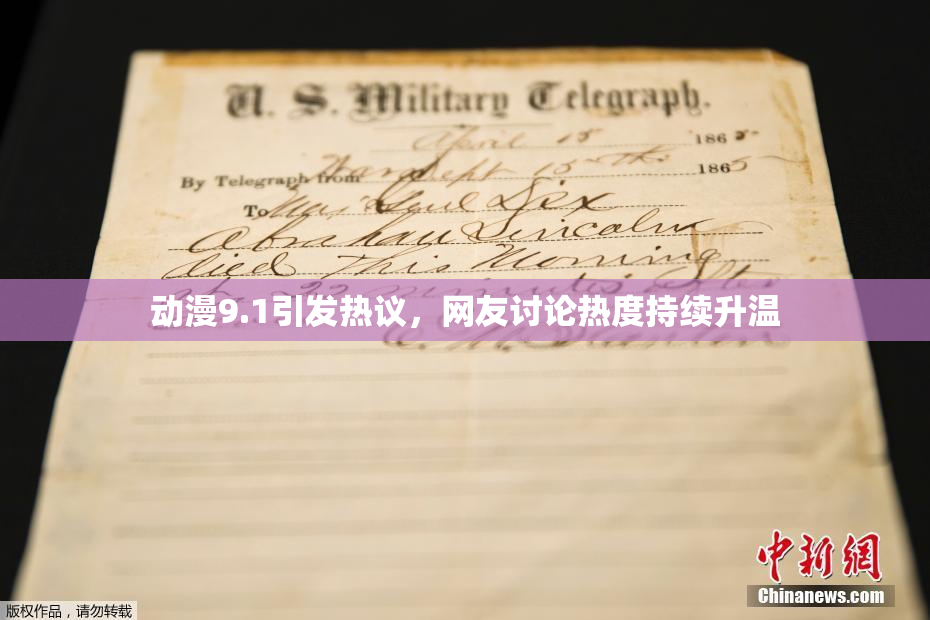 U. S. Military Telegraph.
April 15 1865
By Telegraph from War Dept 15th 1865
To Maj Genl Dix
Abraham Lincoln
died This Morning
at 22 minutes after
动漫9.1引发热议，网友讨论热度持续升温
E. M. Stanton
中新网
Chinanews.com
版权作品，请勿转载